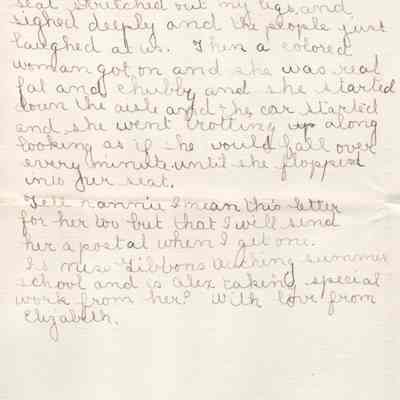 seat stretched out my legs and
sighed deeply and the people just
laughed at us. Then a colored
woman got on and she was real
fat and chubby and she started
down the aisle and the car started
and she went trotting up along
looking as if she would fall over
every minute until she flopped
into her seat.
Tell nannie I mean this letter
for her too but that I will send
her a postal when I get one.
Is miss Gibbons teaching summer
school and is alex taking special
work from her? With love from
Elizabeth.